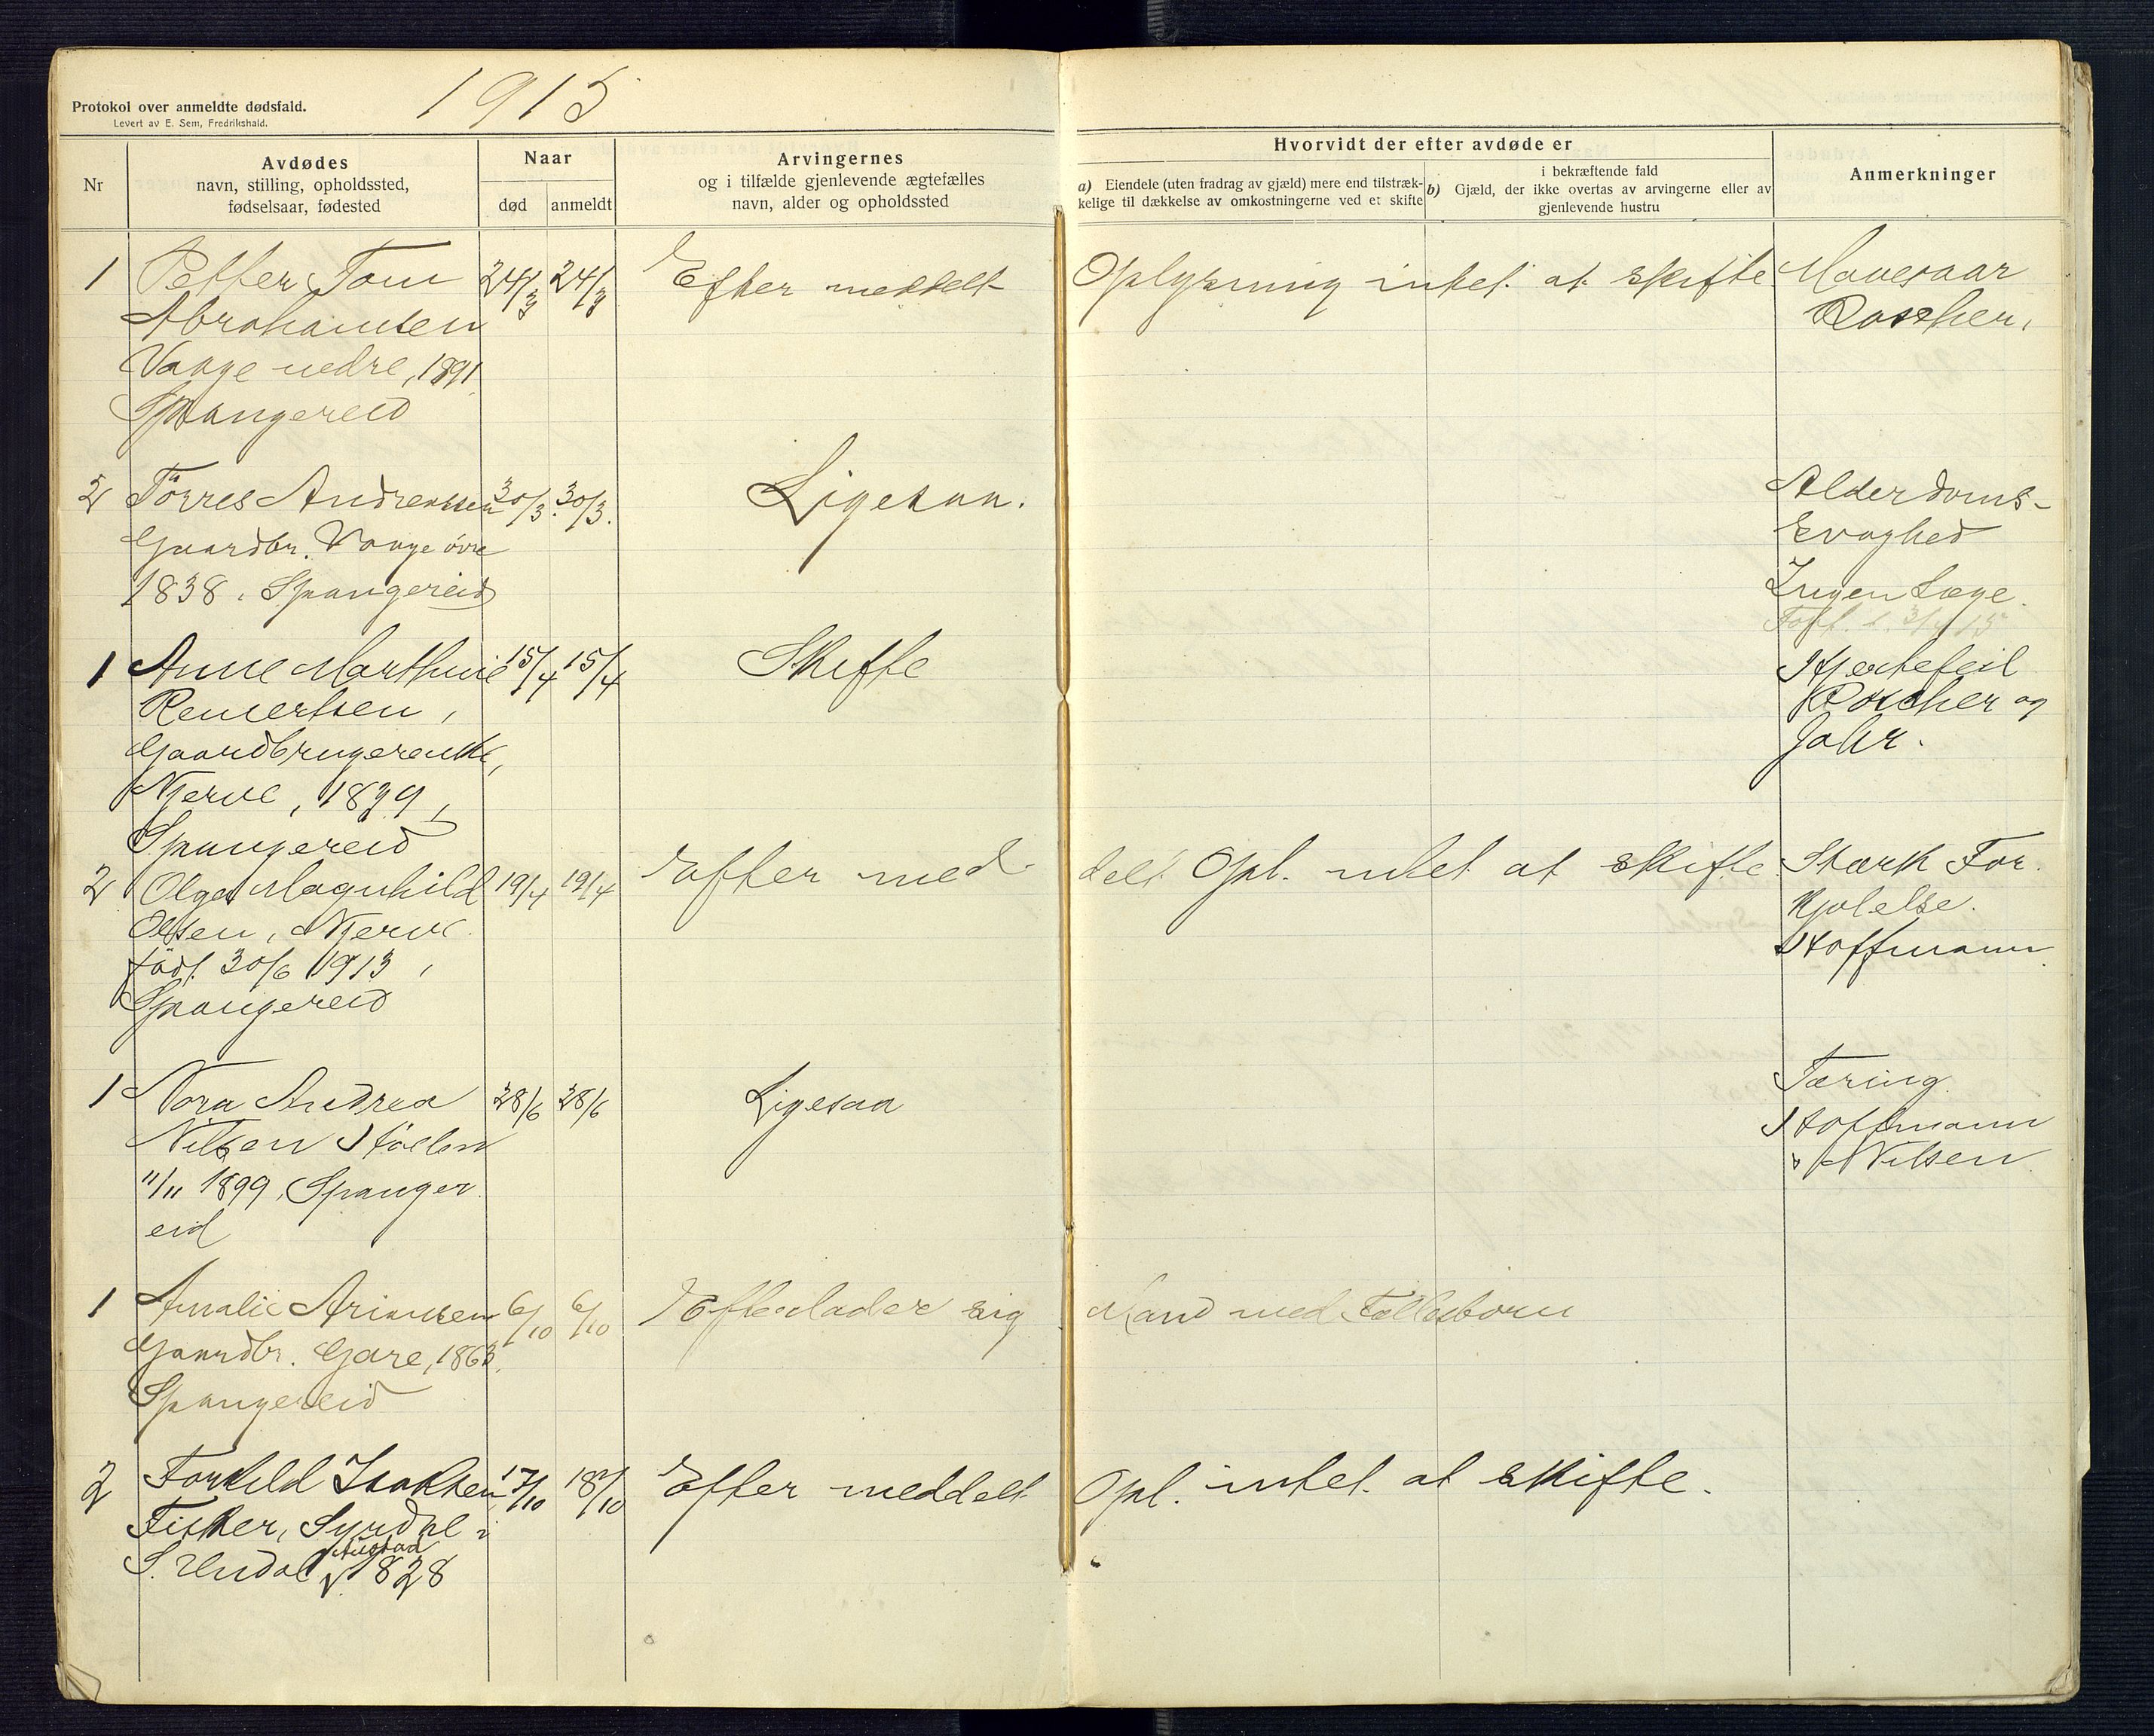 Protokol over anmeldte dødsfald.
Levert av E. Sem, Fredrikshald.
1915
Nr
Avdødes
navn, stilling, opholdssted,
fødselsaar, fødested
Naar
død
anmeldt
Arvingernes
og i tilfælde gjenlevende ægtefælles
navn, alder og opholdssted
Hvorvidt der efter avdøde er
a) Eiendele (uten fradrag av gjæld) mere end tilstræk-
kelige til dækkelse av omkostningerne ved et skifte
i bekræftende fald
b) Gjæld, der ikke overtas av arvingerne eller av
gjenlevende hustru
Anmerkninger
1 Petter Tom 24/3 24/3 Efter meddelt Oplysning intet at skifte Mavesaar
Abrahamsen Roscher,
Vaage nedre, 1891
Spangereid
2 Törres Andreassen 30/3 30/3. Ligesaa. Alderdoms-
Gaardbr. Vaage övre svaghed
1838, Spangereid Ingen Læge.
1 Anne Marthine 15/4 15/4 Skifte Hjertefeil
Reiertsen, Roscher og
Gaardbrugerenke, Jahr.
Njerve, 1839,
Spangereid
2 Olga Magnhild 19/4 19/4 Efter med delt Opl. intet at skifte Stærk For
Olsen, Njerve kjølelse.
födt 30/6 1913, Hoffmann.
Spangereid
1 Nora Andrea 28/6 28/6 Ligesaa Tæring
Nilsen Höllen Hoffmann
11/11 1899, Spanger Nilsen
eid
1 Amalie Arientsen 6/10 6/10 Efterlader sig Mand med Fællesbørn
Gaardbr. Gare, 1863,
Spangereid
2 Torkild Isaksen 17/10 18/10 Efter meddelt Opl. intet at skifte.
Fisker, Syrdal i
S. Undal Austad 1828